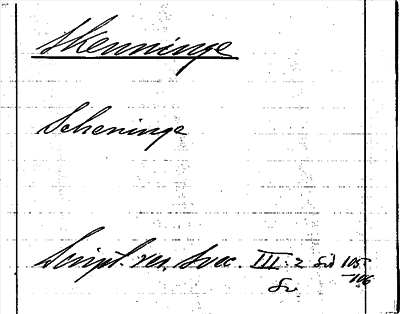 Skenninge
Scheninge
Script. rer. Svec. III: 2 Sid 105
-106
Sv.